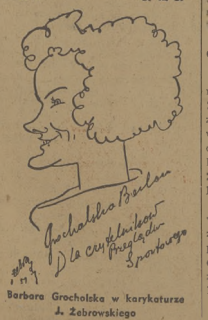 Grocholska Barbara
Dla czytelników
Przeglądu
Sportowego
Barbara Grocholska w karykaturze
J. Żebrowskiego